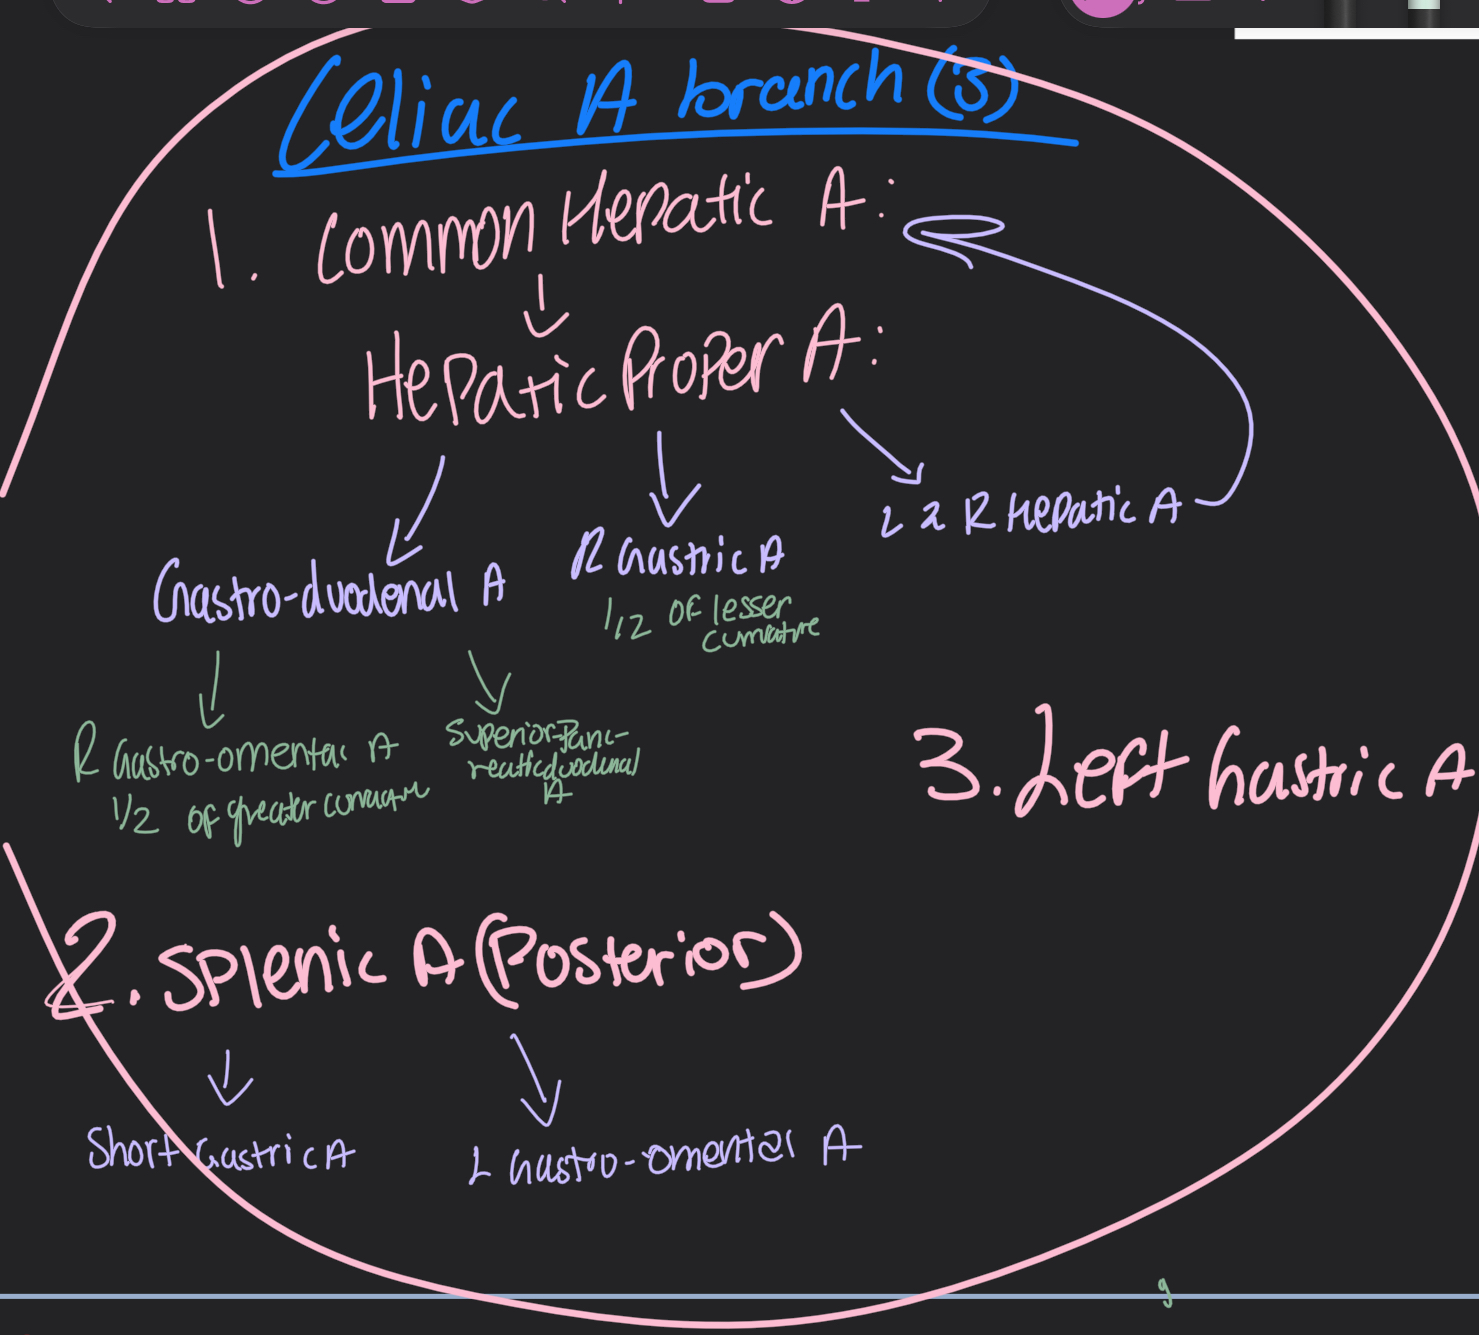 Celiac A branch (3)
1. Common Hepatic A:
Hepatic Proper A:
L & R Hepatic A
R Gastric A
1/12 of lesser
curvature
Gastro-duodenal A
R Gastro-omental A
1/2 of greater curvature
Superior-Panc-
reaticduodenal
A
3. Left Gastric A
2. Splenic A (Posterior)
Short Gastric A
L Gastro-omental A
g